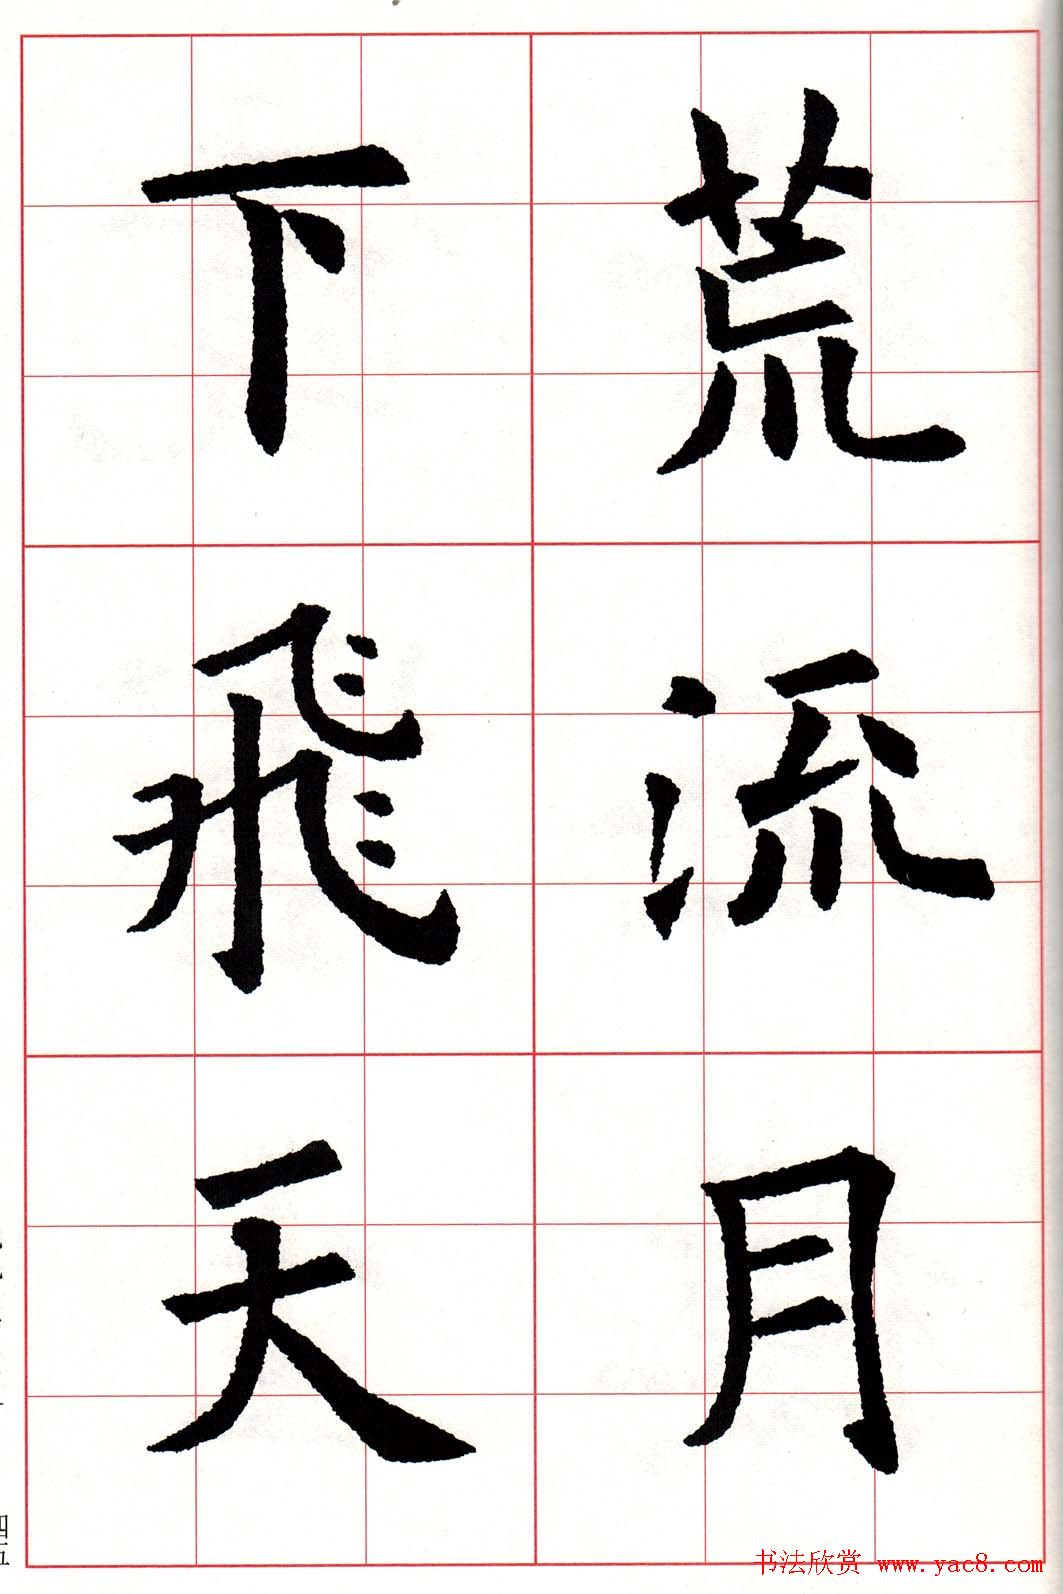 荒流月
下飛天
四五
书法欣赏 www.yac8.com